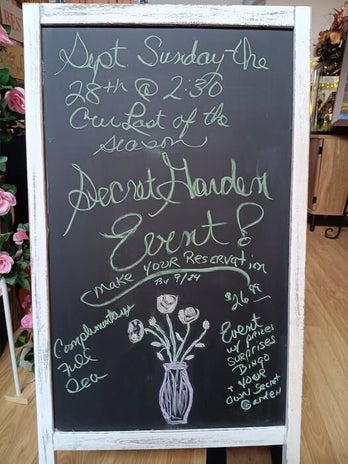 Sept. Sunday the
28th @ 2:30
Our Last of the
season
Secret Garden
Event!
make your Reservation
By 9/24
$26.
Complimentary
Full
Tea
Event
w/ prizes
SURPRISES
BINGO
+ YOUR
OWN SECRET
GARDEN